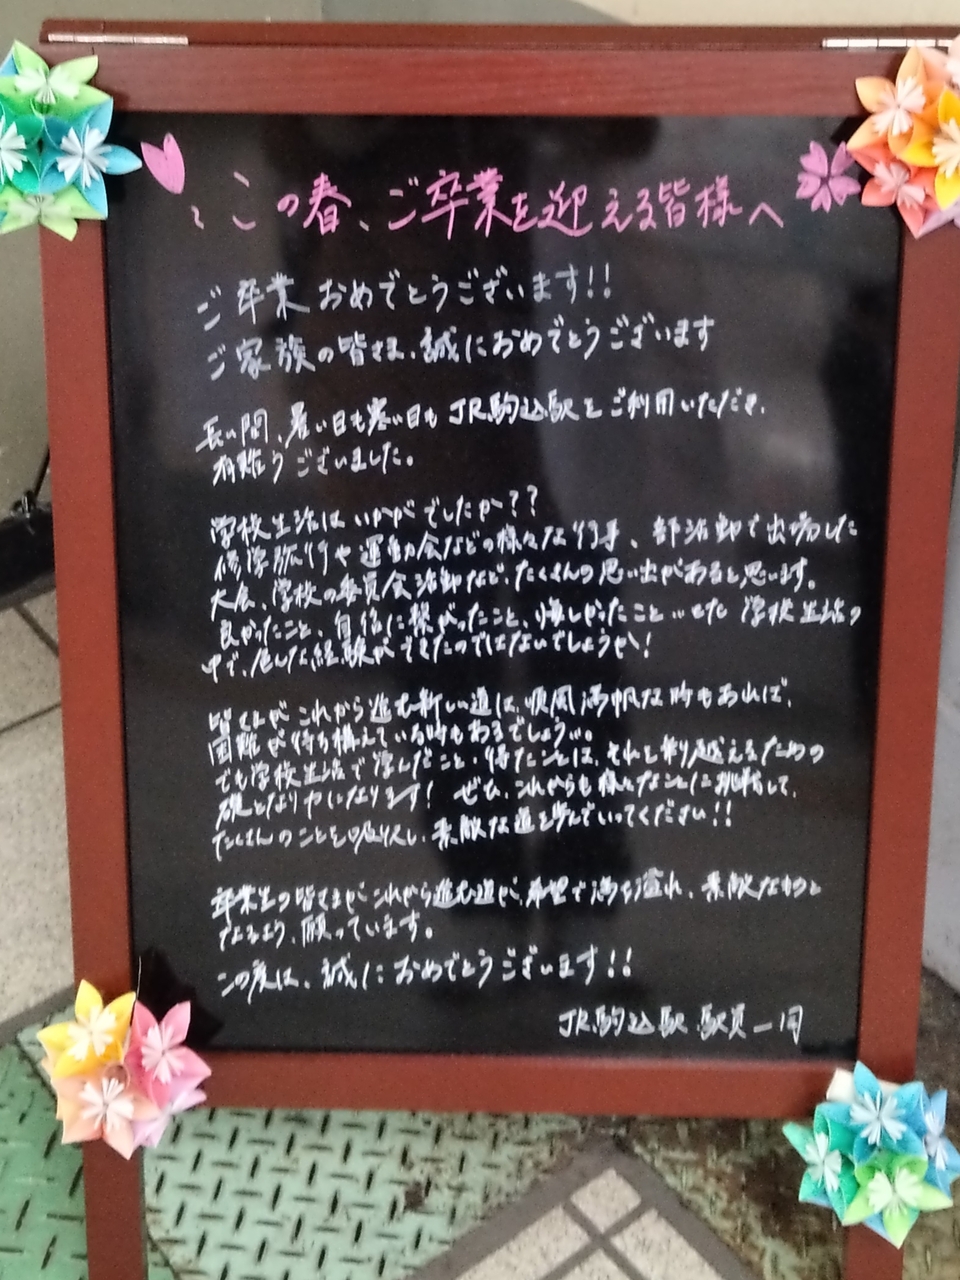 この春、ご卒業を迎える皆様へ
ご卒業おめでとうございます!!
ご家族の皆さま、誠におめでとうございます
長い間、暑い日も寒い日もJR駒込駅をご利用いただき、
有難うございました。
学校生活はいかがでしたか??
修学旅行や運動会などの様々な行事、部活動で出場した
大会、学校の委員会活動など、たくさんの思い出があると思います。
良かったこと、自信に繋がったこと、悔しかったこと… 学校生活の
中で、した経験ができたのではないでしょうか!
皆さんがこれから進む新しい道は、順風満帆な時もあれば、
困難が待ち構えている時もあるでしょう…。
でも学校生活で学んだこと・得たことは、それを乗り越えるための
礎となり力になります! ぜひ、これからも様々なことに挑戦して、
たくさんのことを吸収し、素敵な道を歩んでいってください!!
卒業生の皆さまがこれから進む道が、希望で満ち溢れ、素敵なものと
なるよう、願っています。
この度は、誠におめでとうございます!!
JR駒込駅 駅員一同